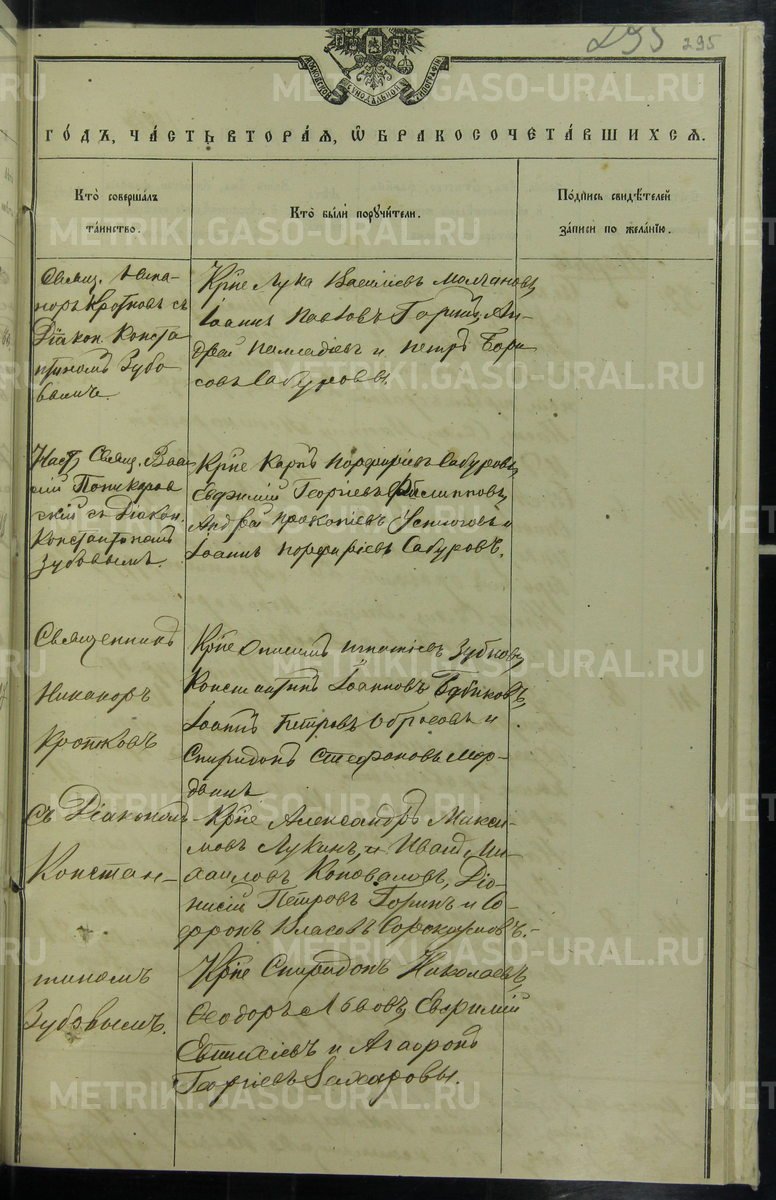 295 295
МОСКОВСКОЙ СѴНОДАЛЬНОЙ ТИПОГРАФІИ
ГО́ДЪ, ЧА́СТЬ ВТОРА́Я, Ѡ БРАКОСОЧЕТА́ВШИХСЯ.
Кто̀ соверша́лъ
та́инство.
Кто̀ бы́ли поручи́тели.
По́дпись свидѣ́телей
за́писи по жела́нію.
Священ. Ника-
норъ Кротковъ съ
Діакон. Конста
нтиномъ Зубо
вымъ.
Крне Лука Василіевъ Молчановъ,
Іоаннъ Павловъ Горинъ, Ан-
дрей Палладіевъ и Петръ Бори
совъ Сабуровы.
Наст. Свящ. Васи
лій Поникаров
скій съ Діакон.
Константиномъ
Зубовымъ.
Крне Карпъ Порфиріевъ Сабуровъ,
Евфимій Георгіевъ Филипповъ,
Андрей Прокопіевъ Устюговъ и
Іоаннъ Порфиріевъ Сабуровъ.
Священникъ
Никаноръ
Кротковъ
съ Діакономъ
Констан-
тиномъ
Зубовымъ.
Крне Онисимъ Игнатіевъ Зубковъ,
Константинъ Іоанновъ
Іоаннъ Петровъ Обросовъ и
Спиридонъ Стефановъ Мор-
двинъ
Крне Александръ Макси-
мовъ Лукинъ, и Иванъ Ми-
хаиловъ Коноваловъ, Діо-
нисій Петровъ Горинъ и Со-
фронъ Власовъ Сорокоумовъ.-
Крне Спиридонъ Николаевъ,
Ѳеодоръ Львовъ, Евфимій
Евтихіевъ и Агафонъ
Георгіевъ Захаровы.
METRIKI.GASO-URAL.RU